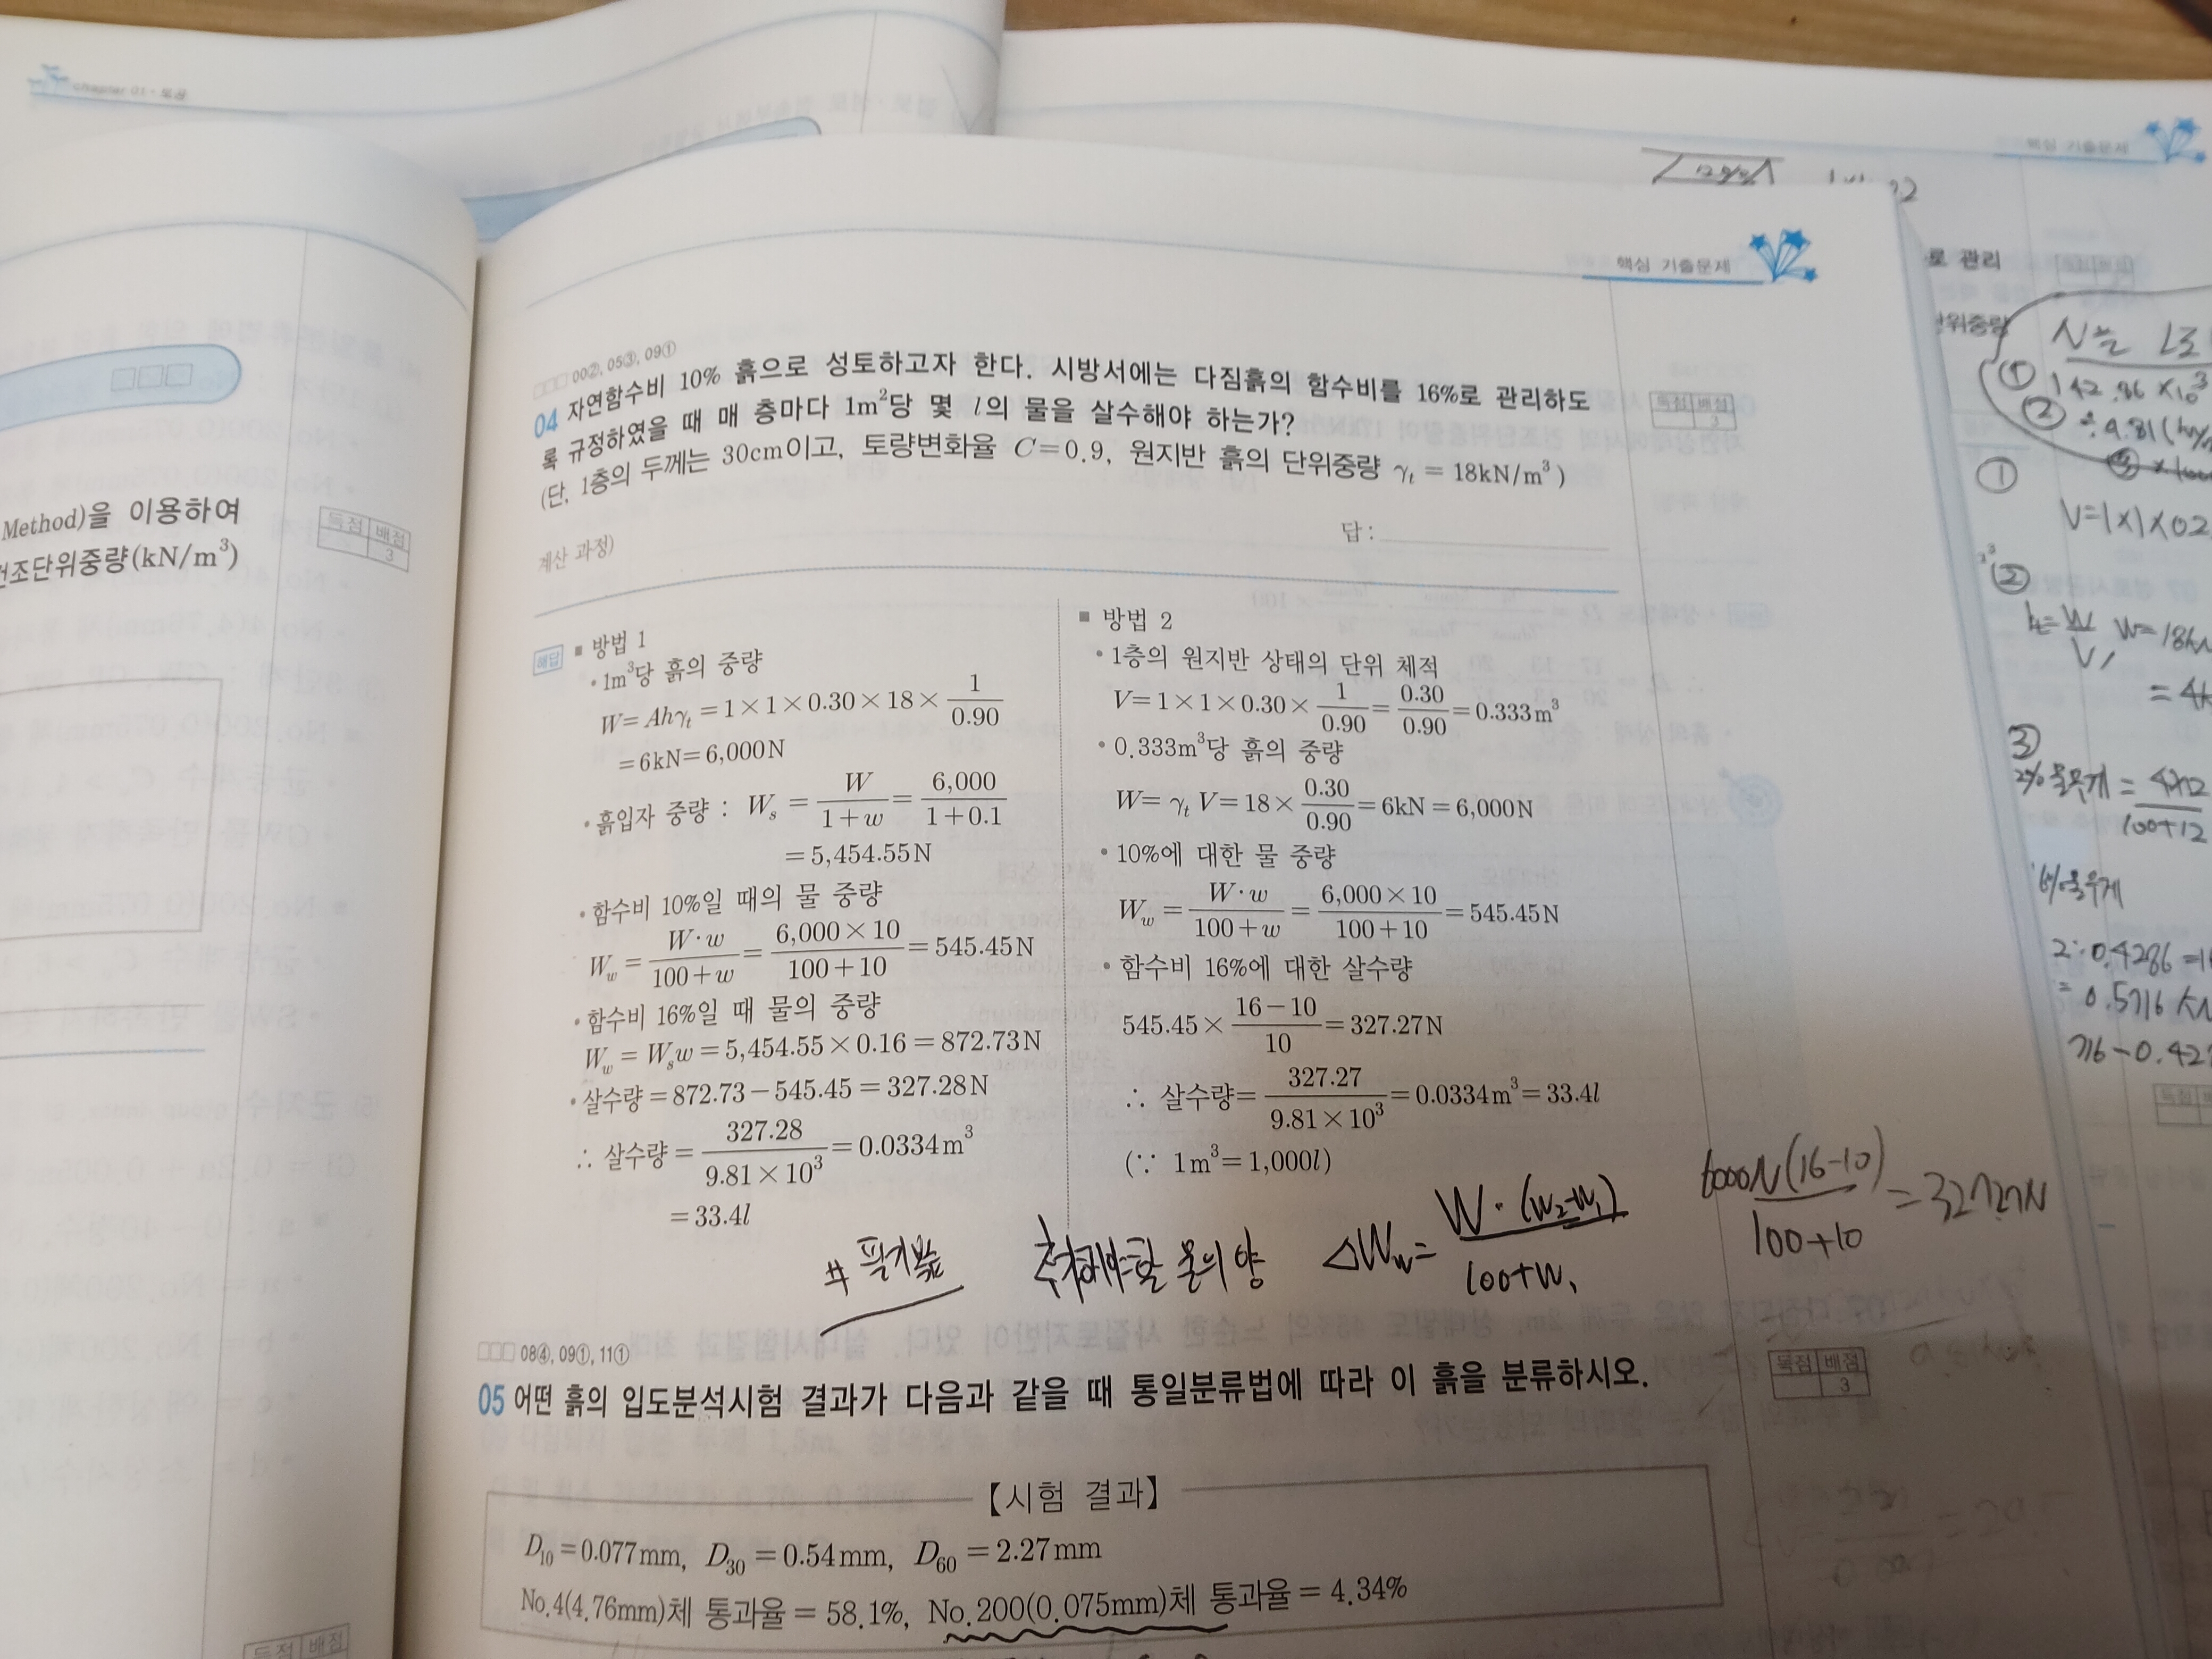 핵심 기출문제
핵심 기출문제
Method)을 이용하여
건조단위중량(kN/m³)
득점 배점
3
□□□ 00②, 05③, 09①
04 자연함수비 10% 흙으로 성토하고자 한다. 시방서에는 다짐흙의 함수비를 16%로 관리하도
록 규정하였을 때 매 층마다 1m²당 몇 l의 물을 살수해야 하는가?
(단, 1층의 두께는 30cm이고, 토량변화율 C=0.9, 원지반 흙의 단위중량 γt = 18kN/m³)
득점 배점
3
계산 과정)
답 :
해답 ■ 방법 1
• 1m³당 흙의 중량
W= Ahγt = 1×1×0.30×18× 1/0.90
=6kN=6,000N
• 흙입자 중량 : Ws = W/(1+w) = 6,000/(1+0.1)
= 5,454.55N
• 함수비 10%일 때의 물 중량
Ww = W·w/(100+w) = 6,000×10/(100+10) = 545.45N
• 함수비 16%일 때 물의 중량
Ww = Wsw = 5,454.55×0.16 = 872.73N
• 살수량 = 872.73−545.45 = 327.28N
∴ 살수량 = 327.28/(9.81×10³) = 0.0334m³
= 33.4l
■ 방법 2
• 1층의 원지반 상태의 단위 체적
V= 1×1×0.30× 1/0.90 = 0.30/0.90 = 0.333m³
• 0.333m³당 흙의 중량
W= γt V= 18× 0.30/0.90 = 6kN = 6,000N
• 10%에 대한 물 중량
Ww = W·w/(100+w) = 6,000×10/(100+10) = 545.45N
• 함수비 16%에 대한 살수량
545.45× (16−10)/10 = 327.27N
∴ 살수량= 327.27/(9.81×10³) = 0.0334m³ = 33.4l
(∵ 1m³= 1,000l)
추가해야할 물의 양 ΔWw= W·(w2−w1)/(100+w1)
6000N(16-10)/(100+10) = 327.27N
□□□ 08④, 09①, 11①
05 어떤 흙의 입도분석시험 결과가 다음과 같을 때 통일분류법에 따라 이 흙을 분류하시오.
득점 배점
3
【시험 결과】
D10 =0.077mm, D30 =0.54mm, D60 =2.27mm
No.4(4.76mm)체 통과율 = 58.1%, No.200(0.075mm)체 통과율 = 4.34%
득점 배점
로 관리
단위중량
① 142.86 ×10³
②
①
V=1×1×0.2
②
W=18k
③
100+12
0.5716 kN